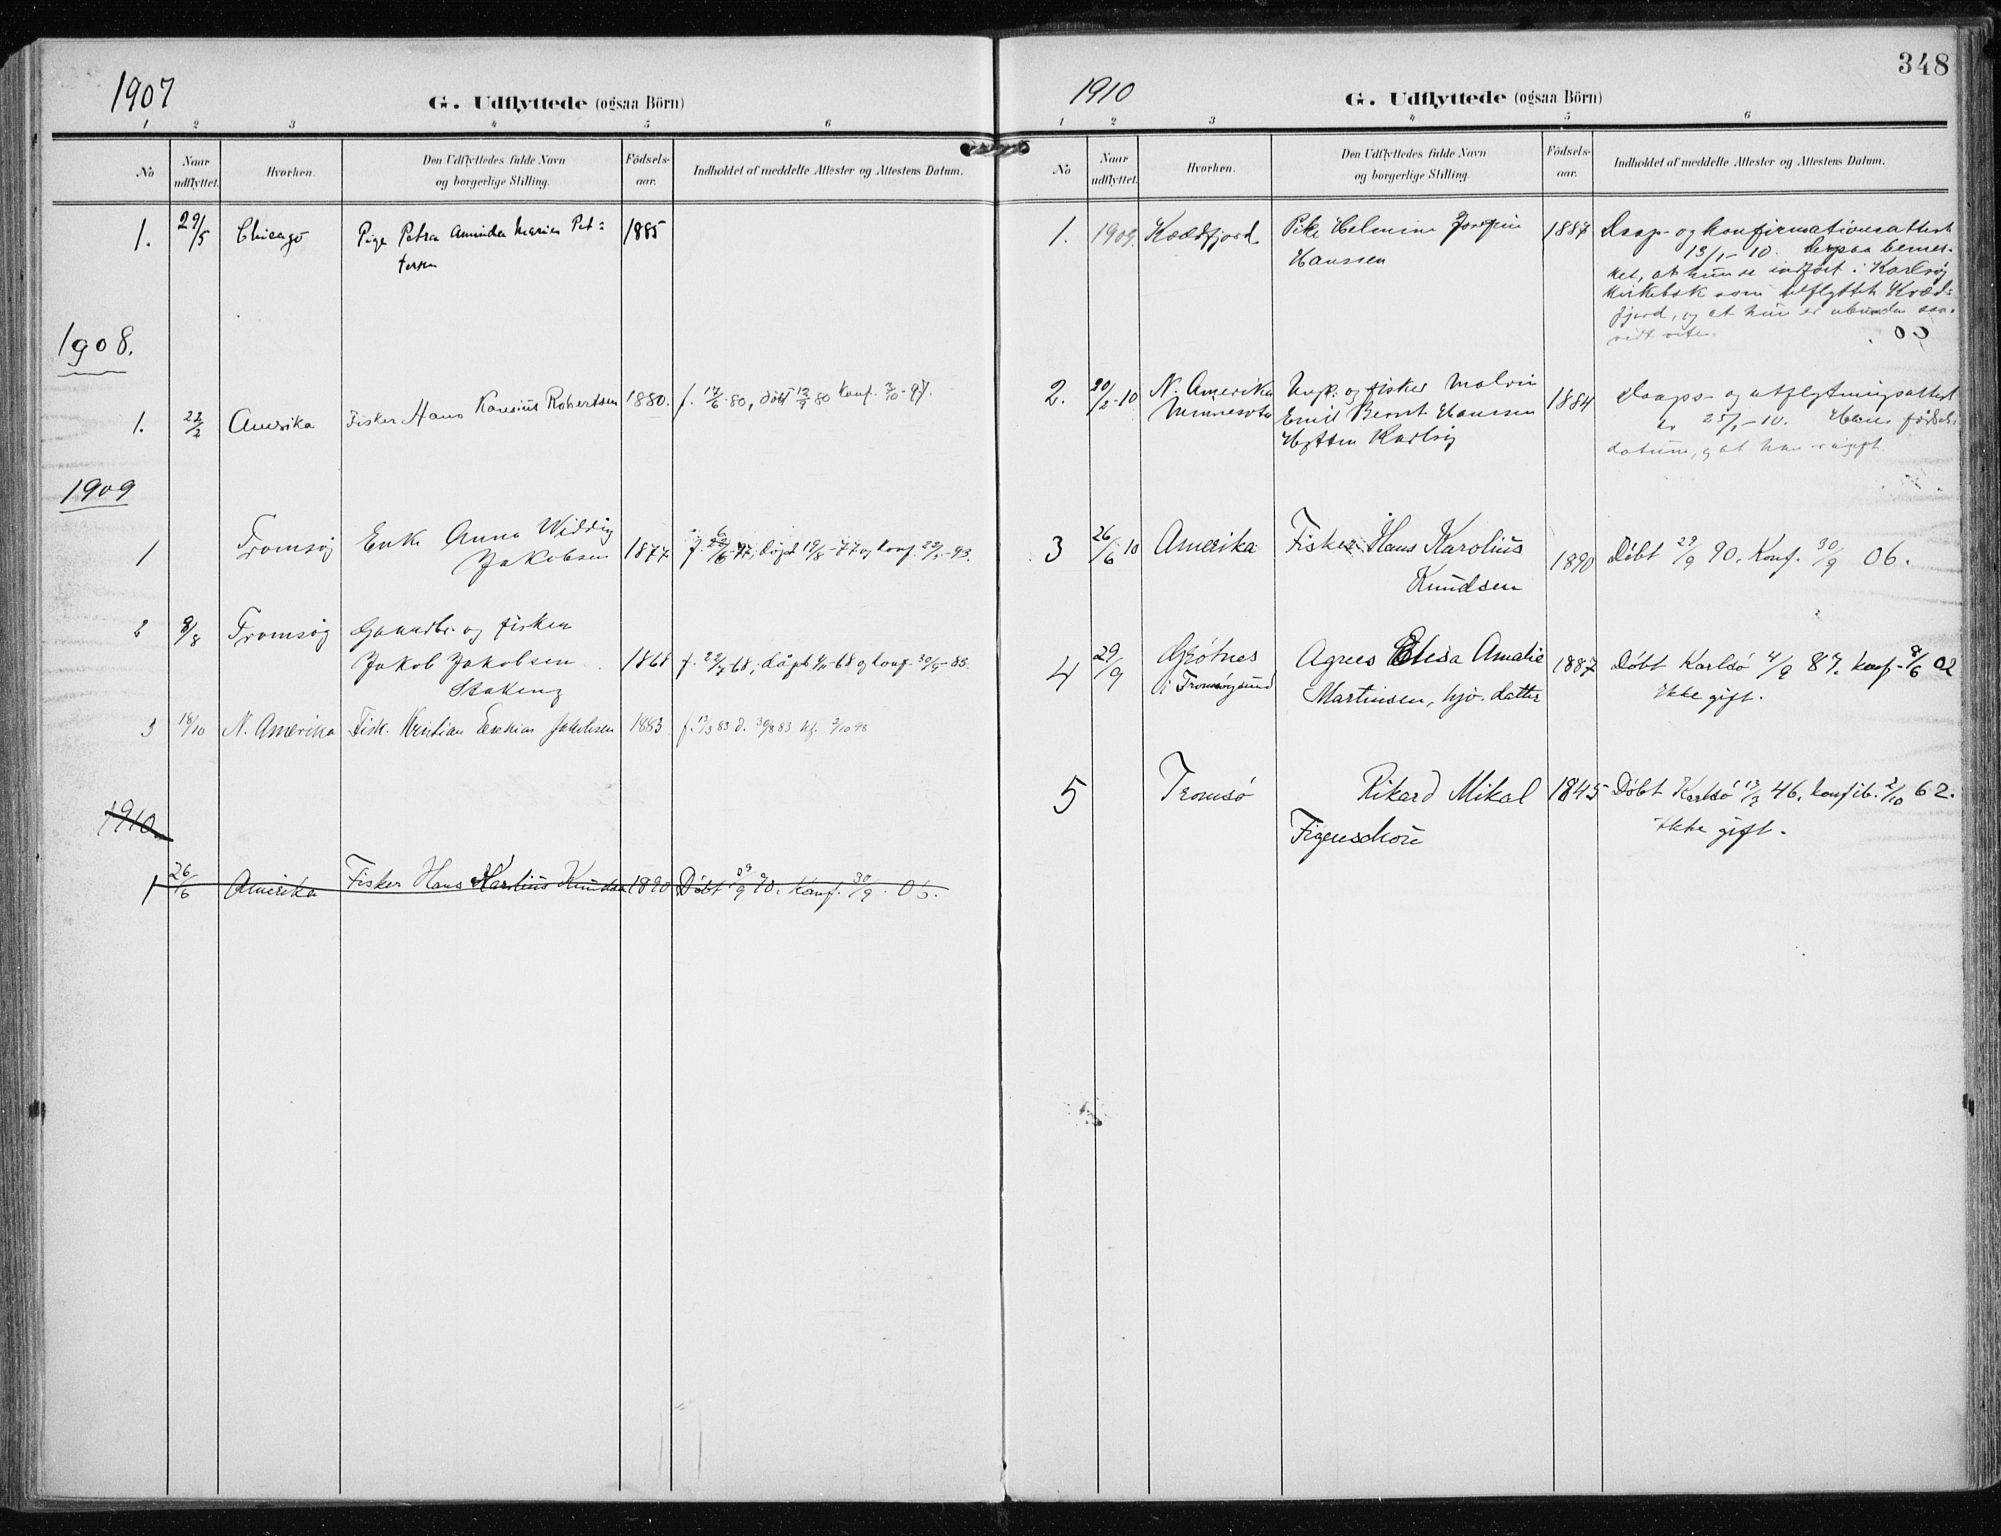 1907
G. Udflyttede (ogsaa Börn)
1 2 3 4 5 6
No
Naar udflyttet.
Hvorhen.
Den Udflyttedes fulde Navn og borgerlige Stilling.
Födsels-aar.
Indholdet af meddelte Attester og Attestens Datum.
1. 29/5 Chicago Pige Petra Aminda Marie Pet- 1885
tersen
1908.
1. 22/2 Amerika Fisker Hans Robertsen 1880. f. 17/6 80, döbt 12/9 80 Konf. 3/10-97.
1909
1 Tromsøy Enke Anna Widdig 1877 døpt 19/8-77 og konf. -93.
Jakobsen
2 8/8 Tromsøy Gaardbr. og fisker
Jakob Jakobsen 1868 f. 22/7-68, døpt -68 og konf. -85.
3 18/10 N. Amerika Fisk. Kristian Jakobsen 1883 f. 83 d. 83 kf. 2/10 98
1910
1 26/6 Amerika Fisker Hans Karolius Knudsen 1890 Döbt 29/9 90. Konf. 30/9. 06.
348
1910
G. Udflyttede (ogsaa Börn)
1 2 3 4 5 6
No
Naar udflyttet.
Hvorhen.
Den Udflyttedes fulde Navn og borgerlige Stilling.
Födsels-aar.
Indholdet af meddelte Attester og Attestens Datum.
1. 1909. Kvædfjord Pike Helmine Josefine 1887 Daap- og konfirmationsattest
Hanssen 13/1-10. Derpaa bemer-
ket, at hun se indført i Karlsøy
kirkebok som utflyttet Kvæd-
fjord, og at hun er ubunden saa-
vidt vites.
2. 20/2-10 N. Amerika Ungk. og fisker Malvin 1884 Daaps- og utflytningsattest
Minnesota Emil Bernt Hanssen 25/1-10. Hans fødsels-
Karlsøy datum, og at han ugift.
3 26/6 10 Amerika Fisker Hans Karolius 1890 Döbt 29/9 90. Konf. 30/9 06.
Knudsen
4 29/9 Grötnes Agnes Elisa Amalie 1887 Döbt Karlsö 4/9 87. konf. 8/6 02
i Tromsøysund Martinsen, hjv. datter Ikke gift.
5 Tromsö Rikard Mikal 1845 Döbt Karlsö 46. konf ib. 2/10 62.
Figenschou Ikke gift.